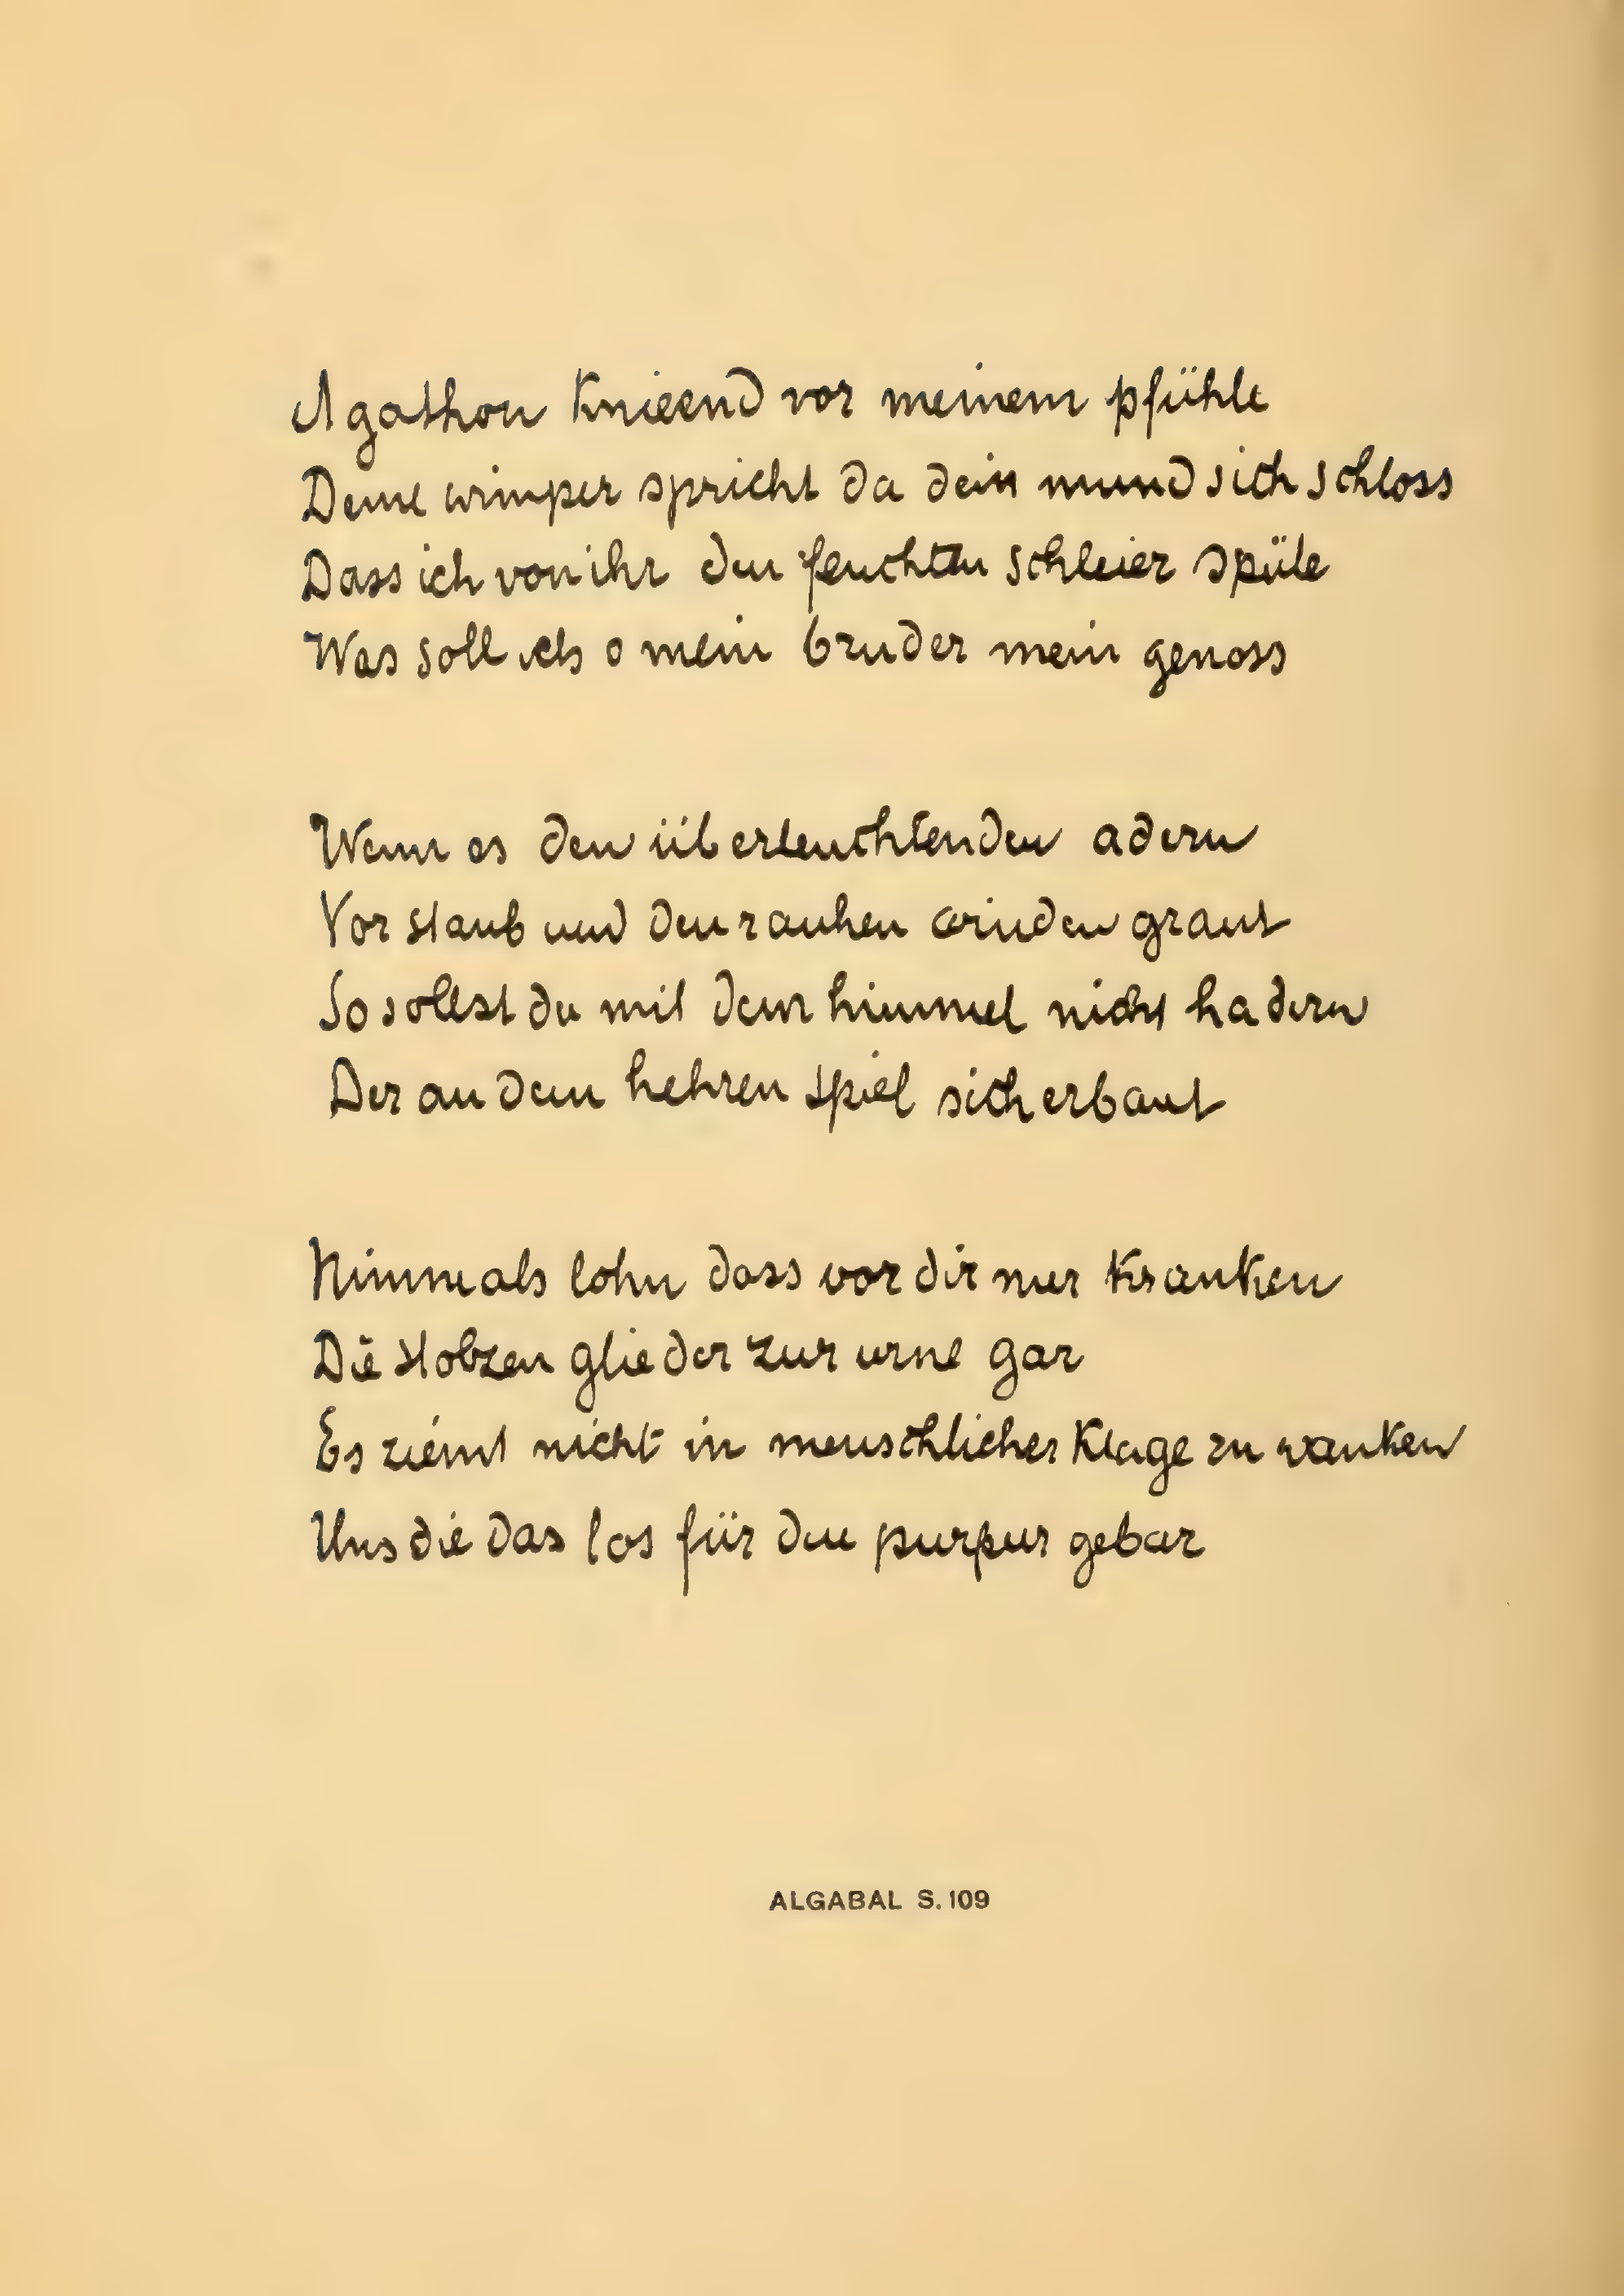 Agathon knieend vor meinem pfühle
Deine wimper spricht da dein mund sich schloss
Dass ich von ihr den feuchten schleier spüle
Was soll ich o mein bruder mein genoss
Wenn es den überleuchtenden adern
Vor staub und den rauhen winden graut
So sollst du mit dem himmel nicht hadern
Der an dem hehren spiel sich erbaut
Nimm als lohn dass vor dir nur kranken
Die stolzen glieder zur urne gar
Es ziemt nicht in menschlicher klage zu wanken
Uns die das los für den purpur gebar
ALGABAL S. 109